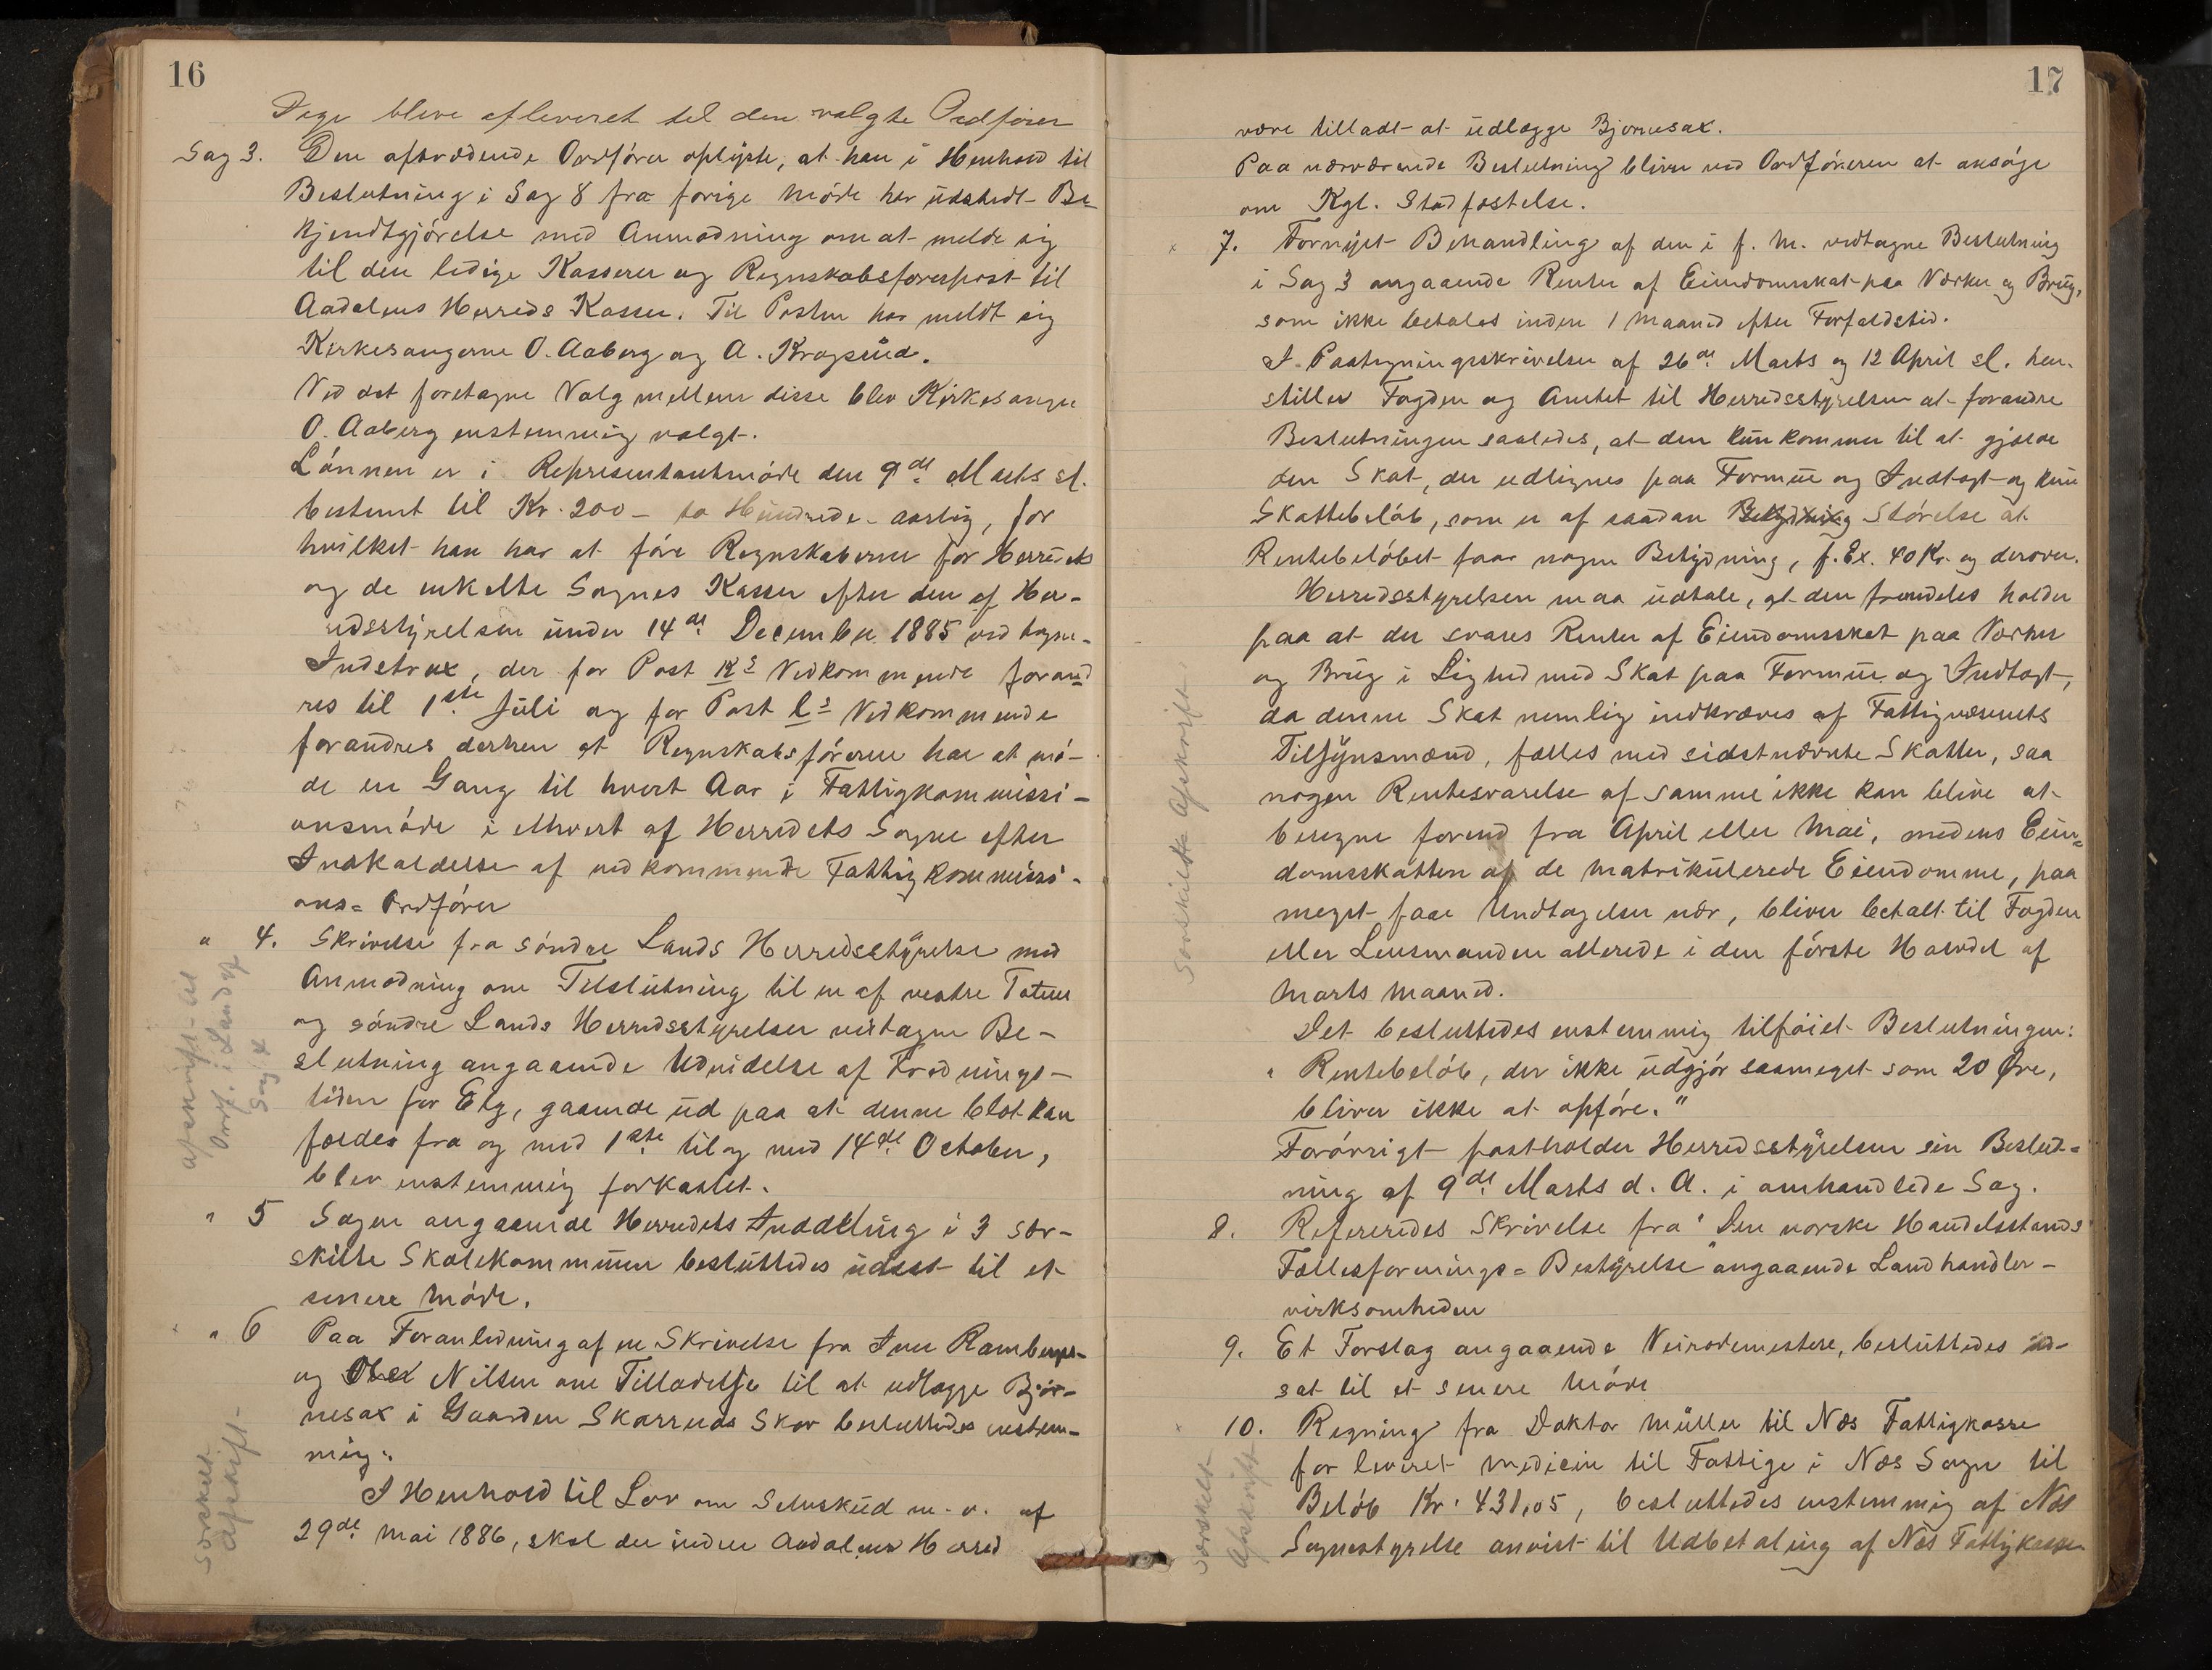 16
bleve afleveret til den valgte Ordfører
Sag 3. Den aftrædende Ordfører oplyste, at han i Henhold til
Beslutning i Sag 8 fra forige Møde har udstedt Be-
kjendtgjørelse med Anmodning om at melde sig
til den ledige Kasserer og Regnskabsførerpost til
Aadalens Herreds Kasser. Til Posten har meldt sig
Kirkesangerne O. Aaberg og A. Kragsrud.
Ved det foretagne Valg mellem disse blev Kirkesanger
O. Aaberg enstemmig valgt.
Lønnen er i Representantmøde den 9de Marts sl.
bestemt til Kr. 200 - to Hundrede - aarlig, for
hvilket han har at føre Regnskaberne for Herredets
og de enkelte Sognes Kasser efter den af Her-
redsstyrelsen under 14de December 1885 vedtagne
Instrux, der for Post K's Vedkommende forand
res til 1ste Juli og for Post l's Vedkommende
forandres derhen at Regnskabsføreren har at mø-
de en Gang til hvert Aar i Fattigkommissi-
onsmøde i ethvert af Herredets Sogne efter
Indkaldelse af vedkommende Fattigkommissi-
ons= Ordfører
" 4. Skrivelse fra søndre Lands Herredsstyrelse med
Anmodning om Tilslutning til en af vestre Toten
og søndre Lands Herredsstyrelser vedtagne Be-
slutning angaaende Udvidelse af Fredningst-
tiden for Elg, gaaende ud paa at denne blot kan
fældes fra og med 1ste til og med 14de October,
blev enstemmig forkastet.
afskrift til
Ordf. i Land af
Sag 4
" 5 Sagen angaaende Herredets Inddeling i 3 sær-
skilte Skolekommuner besluttedes udsat til et
senere Møde.
" 6 Paa Foranledning af en Skrivelse fra Iver Ramberg
og Nilsen om Tilladelse til at udlægge Bjør-
nesax i Gaarden Skarruds Skov besluttedes enstem-
mig:
I Henhold til Lov om Selvskud m. v. af
29de Mai 1886, skal der inden Aadalens Herred
Særskilt
Afskrift
17
være tilladt at udlægge Bjørnesax.
Paa nærværende Beslutning bliver ved Ordføreren at ansøge
om Kgl. Stadfæstelse.
7. Fornyet Behandling af den i f. M. vedtagne Beslutning
i Sag 3 angaaende Renter af Eiendomsskat paa Værker og Brug,
som ikke betales inden 1 Maaned efter Forfaldstid.
I Paategningsskrivelser af 26de Marts og 12 April sl. hen-
stiller Fogden og Amtet til Herredsstyrelsen at forandre
Beslutningen saaledes, at den kun kommer til at gjælde
den Skat, der udlignes paa Formue og Indtægt og kun
Skattebeløb, som er af saadan Betydning Størelse at
Rentebeløbet faar nogen Betydning, f. Ex. 40 Kr. og derover.
Herredsstyrelsen maa udtale, at den fremdeles holder
paa at der svares Renter af Eiendomsskat paa Værker
og Brug i Lighed med Skat paa Formue og Indtægt,
da denne Skat nemlig indkræves af Fattigvæsenets
Tilsynsmænd, fælles med sidstnævnte Skatter, saa
nogen Rentesvarelse af samme ikke kan blive at
beregne forend fra April eller Mai, medens Eien=
domsskatten af de matrikulerede Eiendomme, paa
meget faae Undtagelser nær, bliver betalt til Fogden
eller Lensmanden allerede i den første Halvdel af
Marts Maaned.
Særskilte Afskrift
Det besluttedes enstemmig tilføiet Beslutningen:
" Rentebeløb, der ikke udgjør saameget som 20 Øre,
bliver ikke at opføre."
Forøvrigt fastholder Herredsstyrelsen sin Beslut=
ning af 9de Marts d. A. i omhandlede Sag.
8. Refereredes Skrivelse fra "Den norske Handelsstands
Fællesforenings= Bestyrelse" angaaende Landhandler-
virksomheden
9. Et Forslag angaaende Veirodemestere, besluttedes ud-
sat til et senere Møde
10. Regning fra Doktor Müller til Næs Fattigkasse
for leveret Medicin til Fattige i Næs Sogn til
Beløb Kr. 431,05, besluttedes enstemmig af Næs
Sognestyrelse anvist til Udbetaling af Næs Fattigkasse
Særskilt
Afskrift